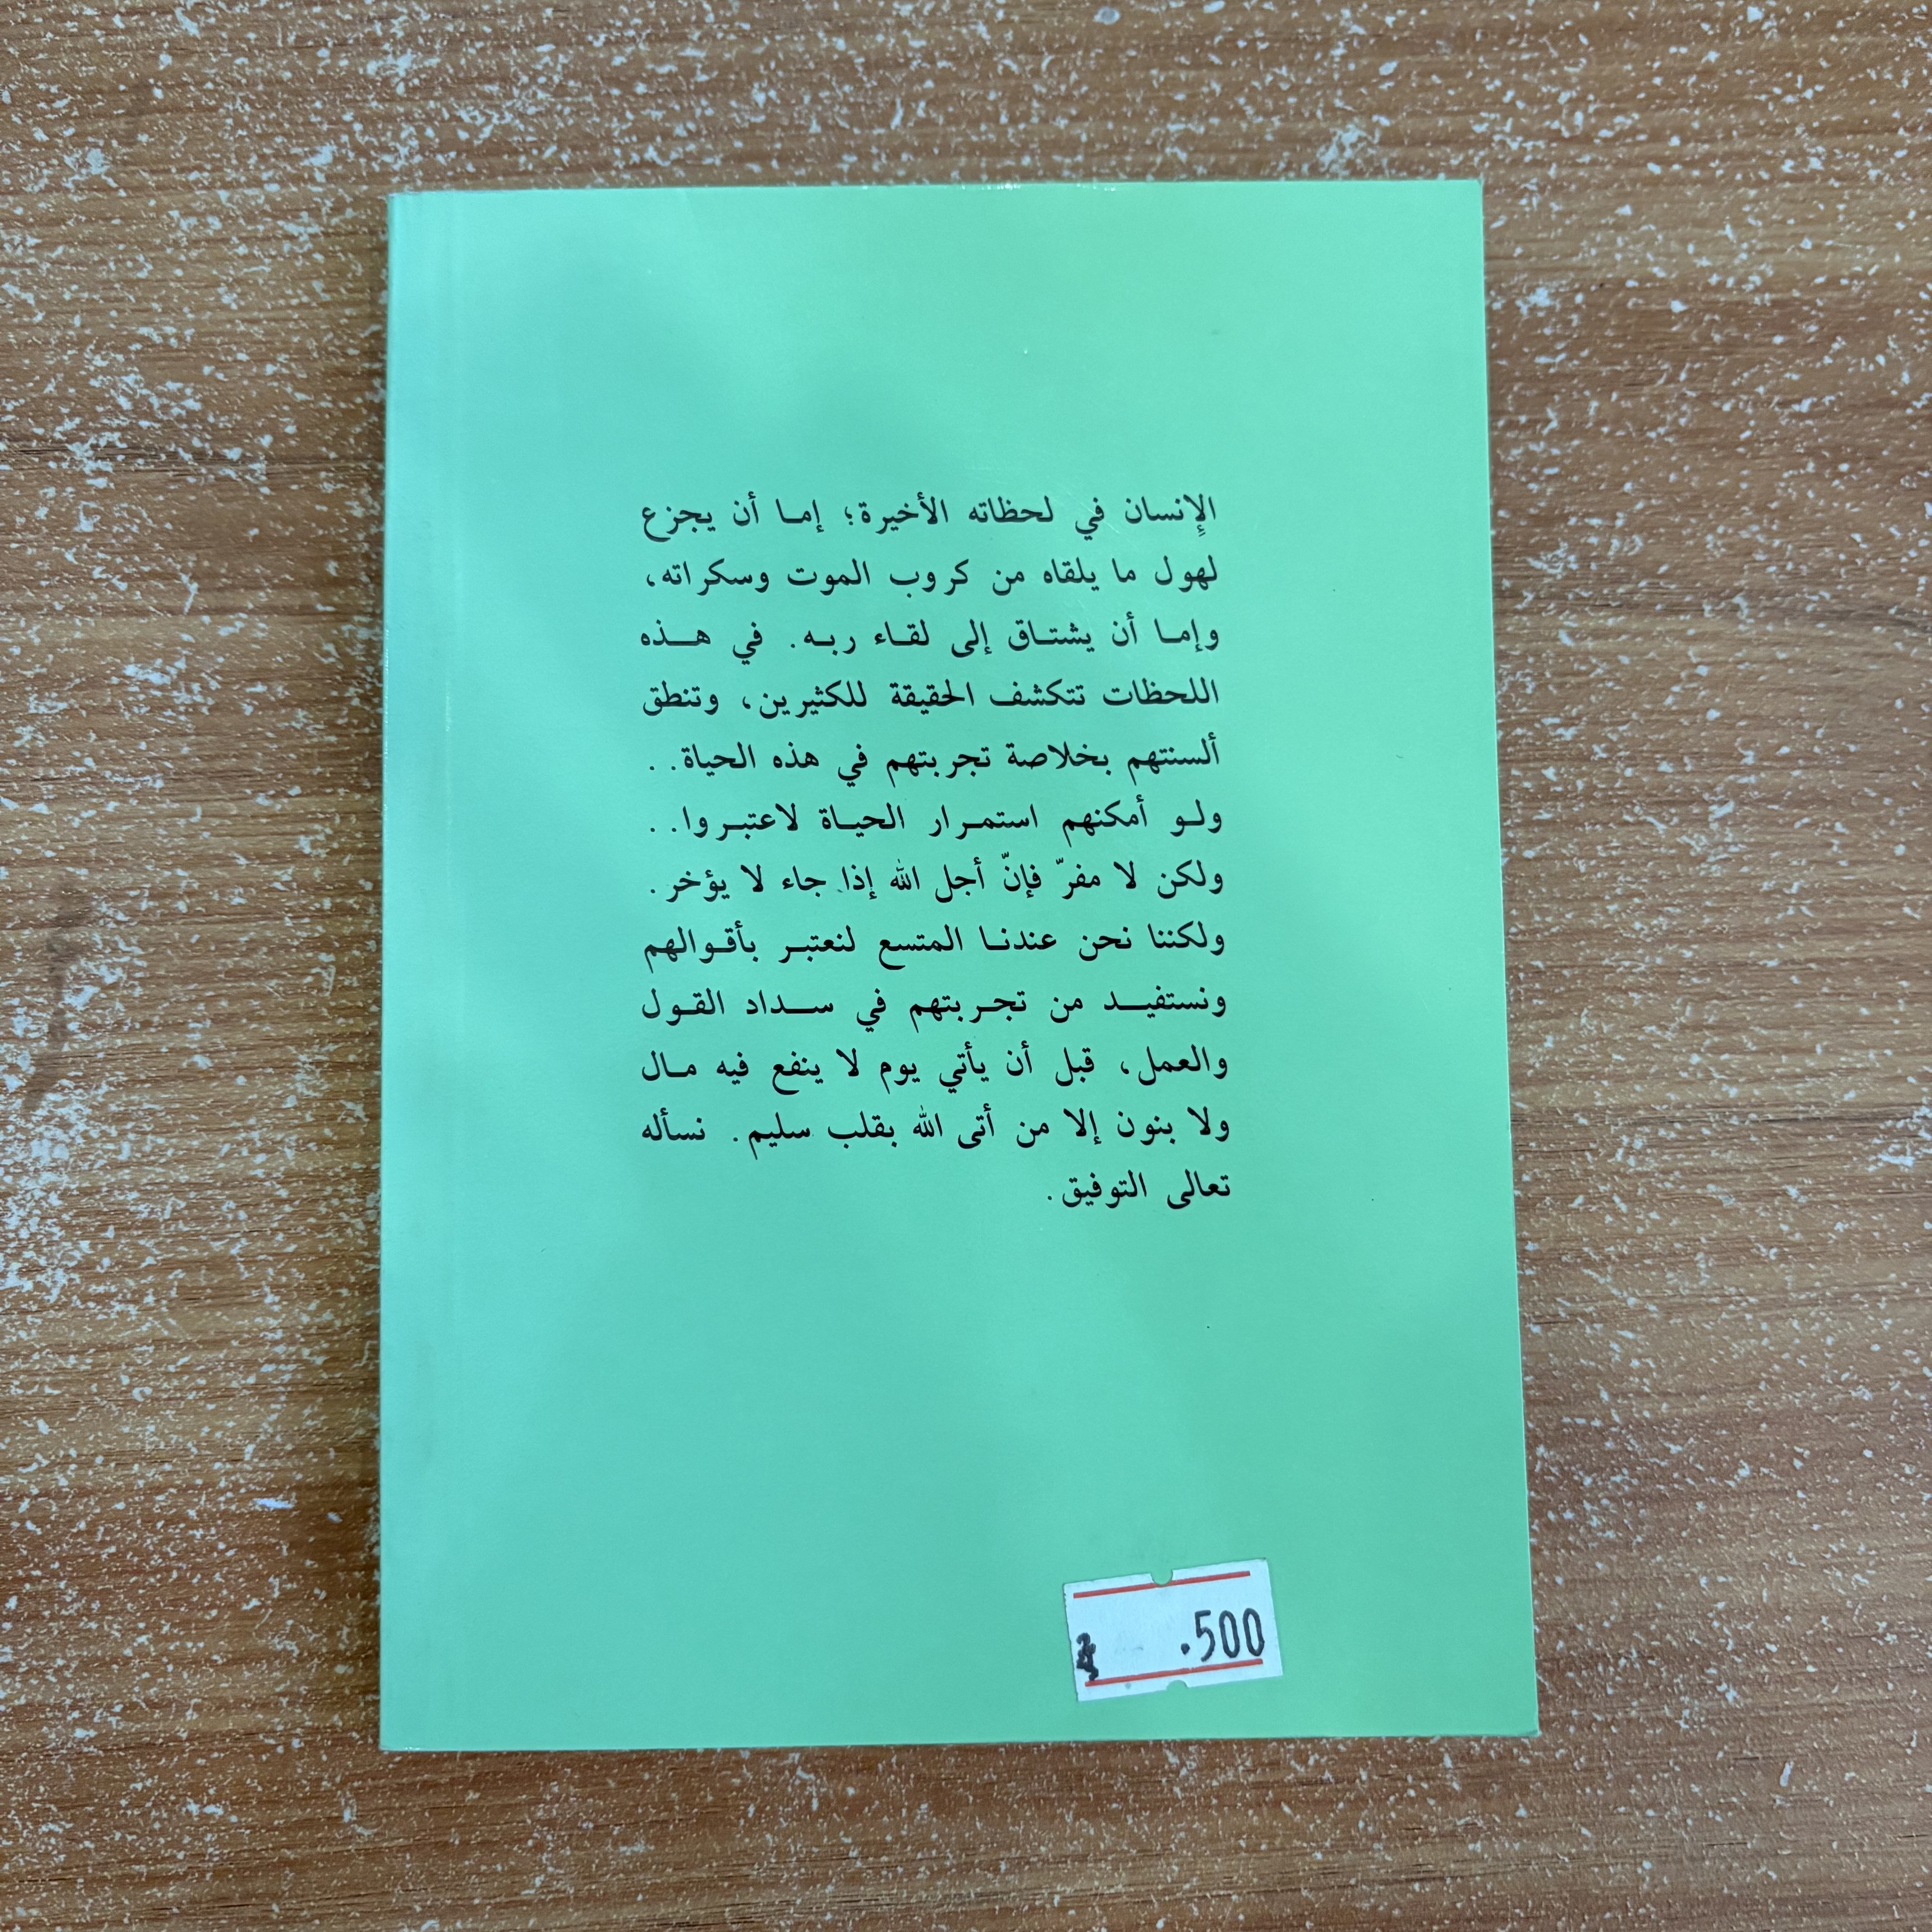 الإنسان في لحظاته الأخيرة؛ إما أن يجزع
لهول ما يلقاه من كروب الموت وسكراته،
وإما أن يشتاق إلى لقاء ربه. في هذه
اللحظات تتكشف الحقيقة للكثيرين، وتنطق
ألسنتهم بخلاصة تجربتهم في هذه الحياة..
ولو أمكنهم استمرار الحياة لاعتبروا..
ولكن لا مفرّ فإنّ أجل الله إذا جاء لا يؤخر.
ولكننا نحن عندنا المتسع لنعتبر بأقوالهم
ونستفيد من تجربتهم في سداد القول
والعمل، قبل أن يأتي يوم لا ينفع فيه مال
ولا بنون إلا من أتى الله بقلب سليم. نسأله
تعالى التوفيق.
.500